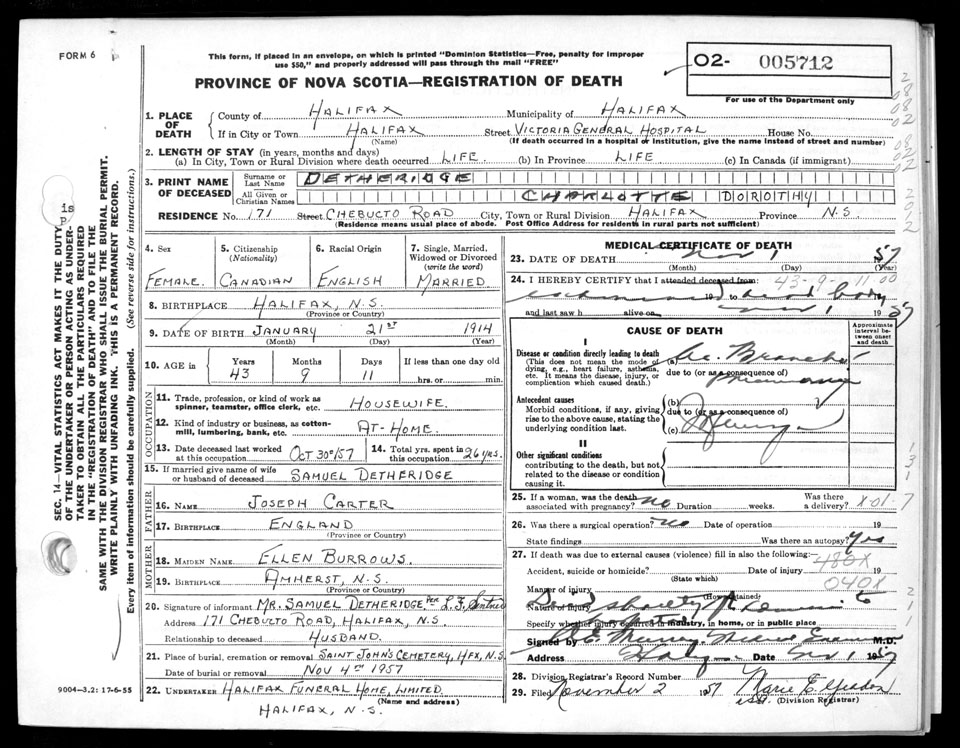 FORM 6
This form, if placed in an envelope, on which is printed "Dominion Statistics—Free, penalty for improper
use $50," and properly addressed will pass through the mail "FREE"
PROVINCE OF NOVA SCOTIA—REGISTRATION OF DEATH
02- 005712
For use of the Department only
1. PLACE OF DEATH
County of HALIFAX Municipality of HALIFAX
If in City or Town HALIFAX Street VICTORIA GENERAL HOSPITAL House No.
(Name) (If death occurred in a hospital or institution, give the name instead of street and number)
2. LENGTH OF STAY (in years, months and days)
(a) In City, Town or Rural Division where death occurred LIFE. (b) In Province LIFE. (c) In Canada (if immigrant)
3. PRINT NAME OF DECEASED
Surname or Last Name DETHERIDGE
All Given or Christian Names CHARLOTTE DOROTHY
RESIDENCE No. 171 Street CHEBUCTO ROAD City, Town or Rural Division HALIFAX Province N.S.
(Residence means usual place of abode. Post Office Address for residents in rural parts not sufficient)
4. Sex FEMALE.
5. Citizenship (Nationality) CANADIAN
6. Racial Origin ENGLISH
7. Single, Married, Widowed or Divorced (write the word) MARRIED
8. BIRTHPLACE HALIFAX, N.S.
(Province or Country)
9. DATE OF BIRTH JANUARY 21ST 1914
(Month) (Day) (Year)
10. AGE in Years 43 Months 9 Days 11 If less than one day old hrs. or min.
OCCUPATION
11. Trade, profession, or kind of work as spinner, teamster, office clerk, etc. HOUSEWIFE.
12. Kind of industry or business, as cotton-mill, lumbering, bank, etc. AT-HOME.
13. Date deceased last worked at this occupation OCT 30TH/57
14. Total yrs. spent in this occupation 26 yrs.
15. If married give name of wife or husband of deceased SAMUEL DETHERIDGE
FATHER
16. NAME JOSEPH CARTER
17. BIRTHPLACE ENGLAND
(Province or Country)
MOTHER
18. MAIDEN NAME ELLEN BURROWS
19. BIRTHPLACE AMHERST, N.S.
(Province or Country)
20. Signature of informant MR. SAMUEL DETHERIDGE Per L.F.
Address 171 CHEBUCTO ROAD, HALIFAX, N.S.
Relationship to deceased HUSBAND.
21. Place of burial, cremation or removal SAINT JOHN'S CEMETERY, HFX, N.S.
Date of burial or removal NOV 4TH 1957
22. UNDERTAKER HALIFAX FUNERAL HOME, LIMITED.
(Name and address)
HALIFAX, N.S.
MEDICAL CERTIFICATE OF DEATH
23. DATE OF DEATH Nov 1 1957
(Month) (Day) (Year)
24. I HEREBY CERTIFY that I attended deceased from: 43-9-11 00
19 to dead body
and last saw h alive on Nov 1 1957
CAUSE OF DEATH
Approximate interval between onset and death
I
Disease or condition directly leading to death (a) Ac. Broncho
(This does not mean the mode of dying, e.g., heart failure, asthenia, etc. It means the disease, injury, or complication which caused death.)
due to (or as a consequence of) pneumonia
Antecedent causes
Morbid conditions, if any, giving rise to the above cause, stating the underlying condition last.
(b)
due to (or as a consequence of)
(c)
II
Other significant conditions
contributing to the death, but not related to the disease or condition causing it.
25. If a woman, was the death associated with pregnancy? no Duration weeks. Was there a delivery? X-01-7
26. Was there a surgical operation? no Date of operation 19
State findings Was there an autopsy? yes
27. If death was due to external causes (violence) fill in also the following: 480X
Accident, suicide or homicide? Date of injury 19
(State which) 040X
Manner of injury
(How sustained)
Nature of injury
Specify whether injury occurred in industry, in home, or in public place
Signed by E. Murray Medical Examiner M.D.
Address Date Nov 1 1957
28. Division Registrar's Record Number
29. Filed November 2 1957 Marie E.
(Division Registrar)
SEC. 14—VITAL STATISTICS ACT MAKES IT THE DUTY
OF THE UNDERTAKER OR PERSON ACTING AS UNDER-
TAKER TO OBTAIN ALL THE PARTICULARS REQUIRED
IN THE "REGISTRATION OF DEATH" AND TO FILE THE
SAME WITH THE DIVISION REGISTRAR WHO SHALL ISSUE THE BURIAL PERMIT.
WRITE PLAINLY WITH UNFADING INK. THIS IS A PERMANENT RECORD.
Every item of information should be carefully supplied. (See reverse side for instructions.)
9004-3.2: 17-6-55